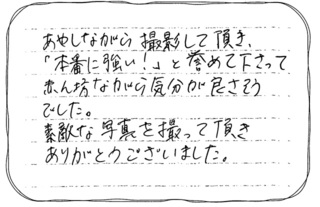 あやしながら撮影して頂き、
「本番に強い！」と誉めて下さって
赤ん坊ながら気分が良さそう
でした。
素敵な写真を撮って頂き
ありがとうございました。